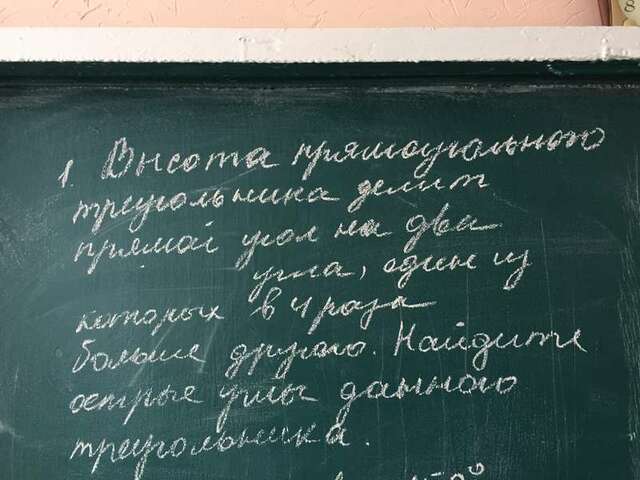 1. Высота прямоугольного
треугольника делит
прямой угол на два
угла, один из
которых в 4 раза
больше другого. Найдите
острые углы данного
треугольника.